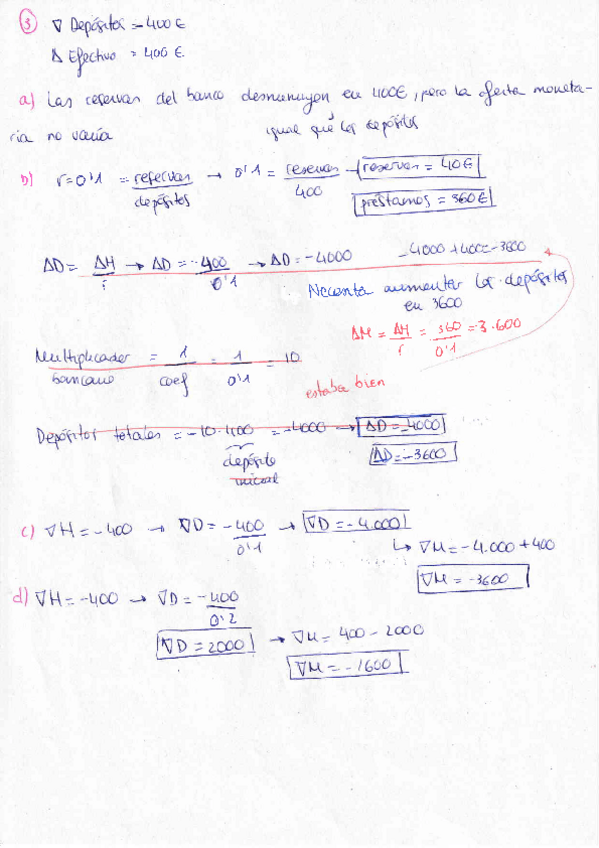 3 ∇ Depósitos = -400€
Δ Efectivo = 400€.
a) Las reservas del banco disminuyen en 400€, pero la oferta moneta-
ria no varía igual que los depósitos
b) r=0'1 = reservas/depósitos → 0'1 = reservas/400 → reservas = 40€
préstamos = 360€
ΔD = ΔH/r → ΔD = -400/0'1 → ΔD = -4000 -4000+400=-3600
Necesita aumentar los depósitos
en 3600
ΔM = ΔH/r = 360/0'1 = 3.600
Multiplicador bancario = 1/coef = 1/0'1 = 10
estaba bien
Depósitos totales = -10·400 = -4000 → ΔD = -4000
depósito
inicial
ΔD = -3600
c) ∇H = -400 → ∇D = -400/0'1 → ∇D = -4.000
↳ ∇M = -4.000 + 400
∇M = -3600
d) ∇H = -400 → ∇D = -400/0'2
∇D = 2000 → ∇M = 400 - 2000
∇M = -1600